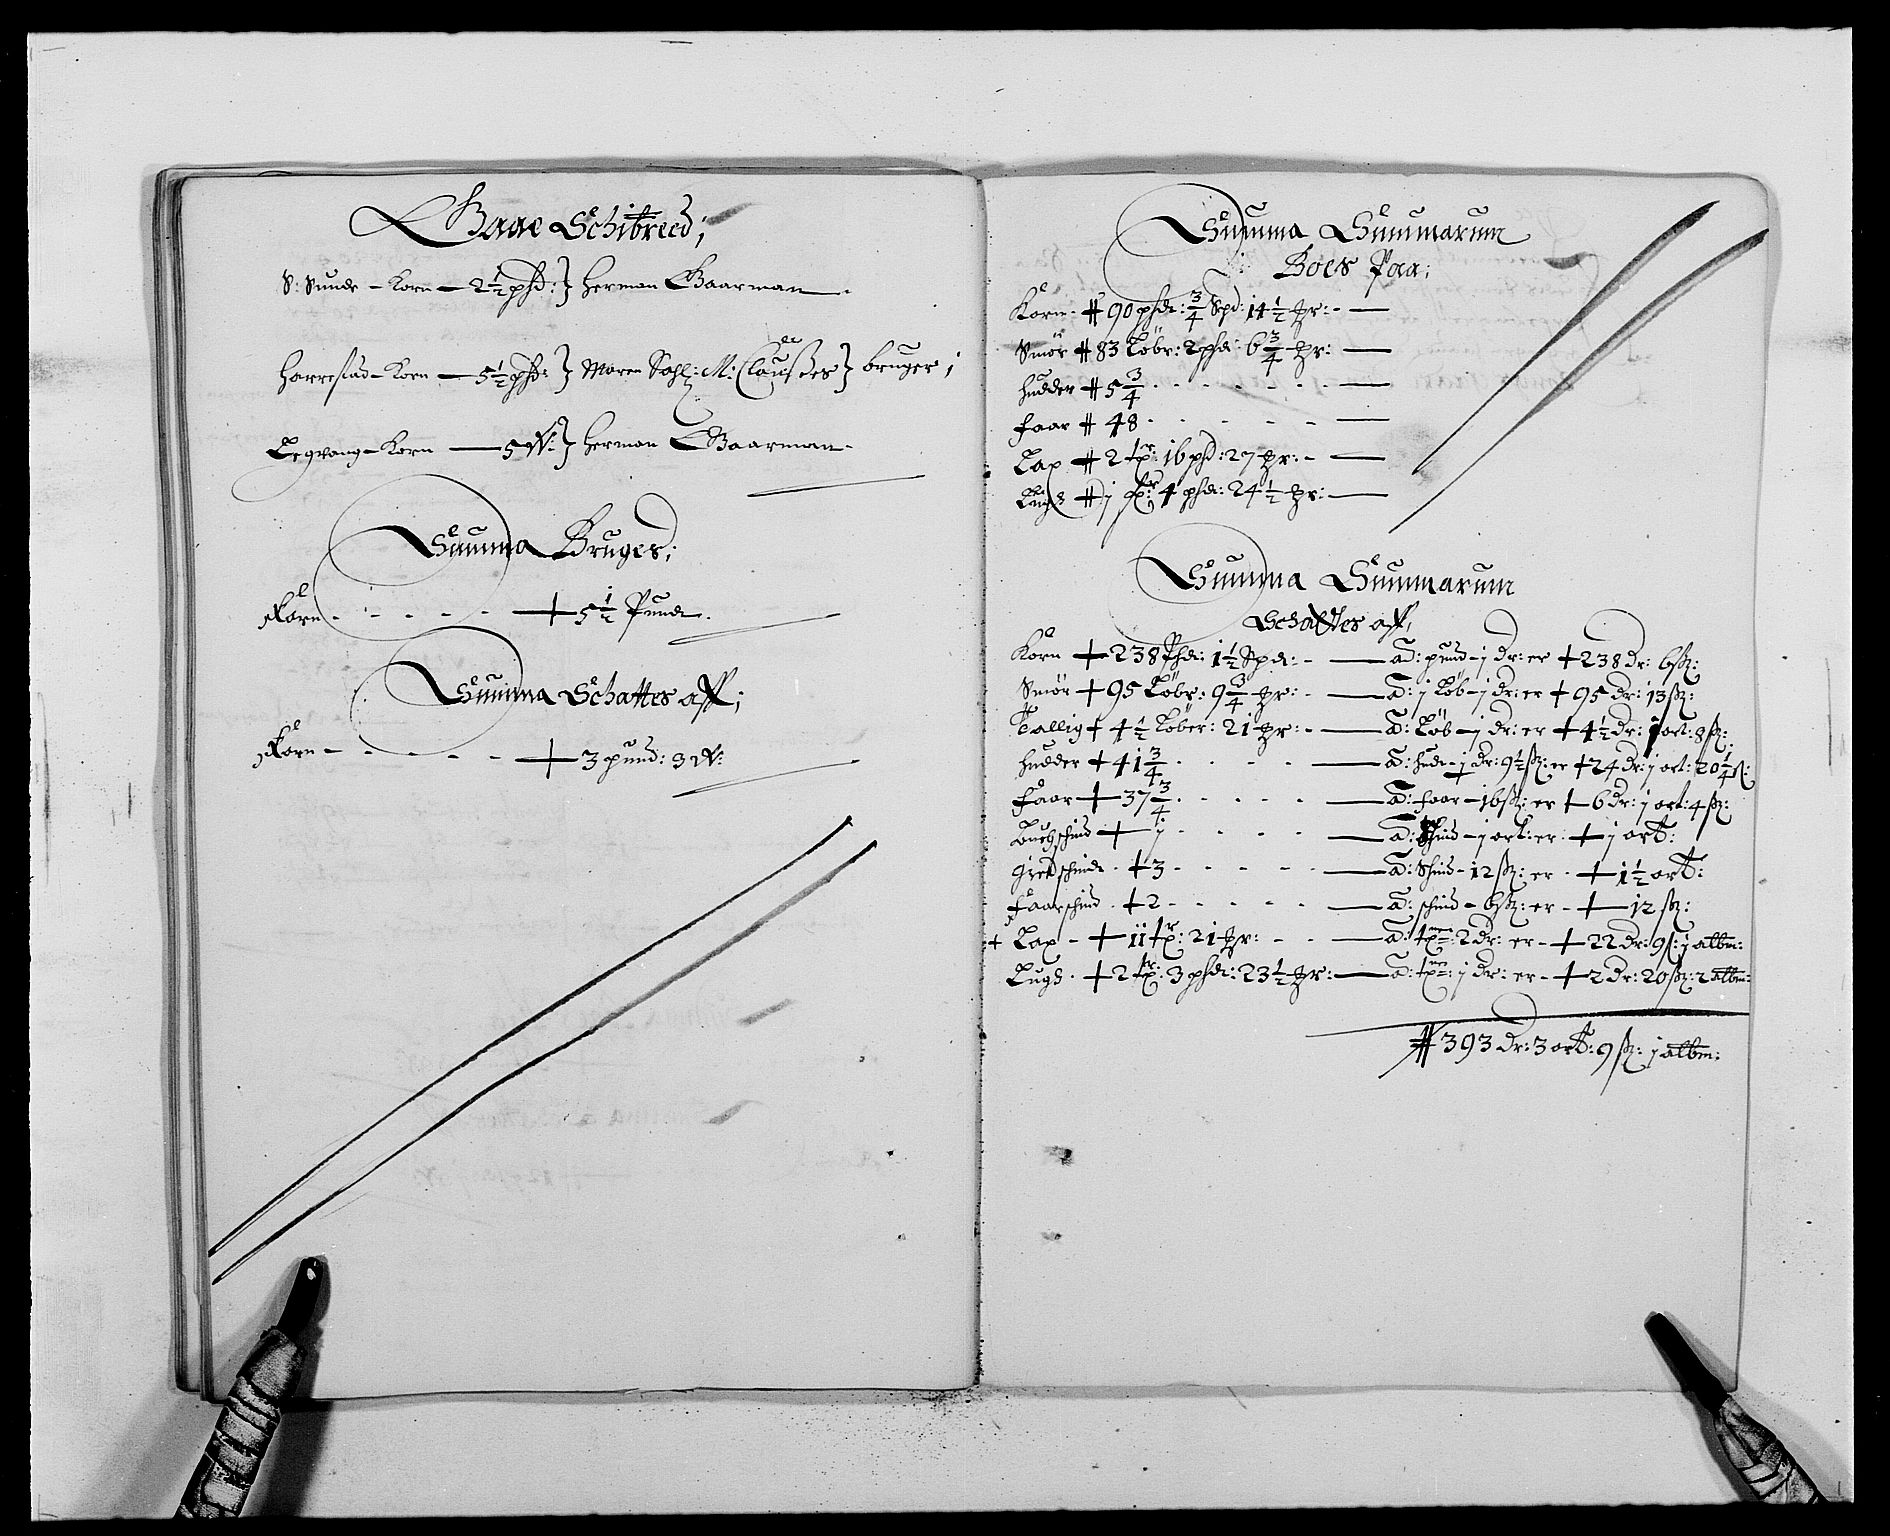 Baae Schibreed;
S: Sunde - Korn - 2½ phd: } Herman Gaarman
Harrestad - Korn - 5½ phd: } Maren Sahl: M: Clausses } bruger;
Legvang - Korn - 5 W: } Herman Gaarman -
Summa Bruges;
Korn - - - - - + 5½ Pund.
Summa Schattes aff;
Korn - - - - - + 3 pund: 3 W:
Summa Summarum
Boes Paa;
Korn # 90 phd: ¾ Spd: 14½ hr: -
Smör # 83 Löbr: 2 phd: 6¾ hr:
Hudder # 5¾ - - - - -
Faar # 48 - - - - -
Lax # 2 tr: 16 phd: 27 hr: -
Lugs # j tr: 4 phd: 24½ hr:
Summa Summarum
Schattes aff;
Korn + 238 Phd: 1½ Spd: - a: pund - j dr: er + 238 dr: 6 sz:
Smör + 95 Löbr: 9¾ hr: - a: j Löb - j dr: er + 95 dr: 13 sz:
Tallig + 4½ Löber: 21 hr: - a: Löb - j dr: er + 4½ dr: j ort: 8 s:
Hudder + 41¾ - - - - a: hud - j dr: 9½ sz: er + 24 dr: j ort: 20¼ s:
Faar + 37¾ - - - - a: faar - 16 sz: er + 6 dr: j ort: 4 sz:
Buchschind + j - - - - a: schind - j ort: er + j ort:
Giedschind + 3 - - - - a: Schind - 12 sz: er - + 1½ ort:
Faarschind + 2 - - - - a: schind - 6 sz: er - + 12 sz:
+ Lax - + 11 tr: 21 hr: - - a: tne: 2 dr: er - + 22 dr: 9 s: j albm:
Lugs + 2 tr: 3 phd: 23½ hr: - a: tne: j dr: er - + 2 dr: 20 sz: 2 albm:
# 393 dr: 3 ort: 9 sz: j albm: